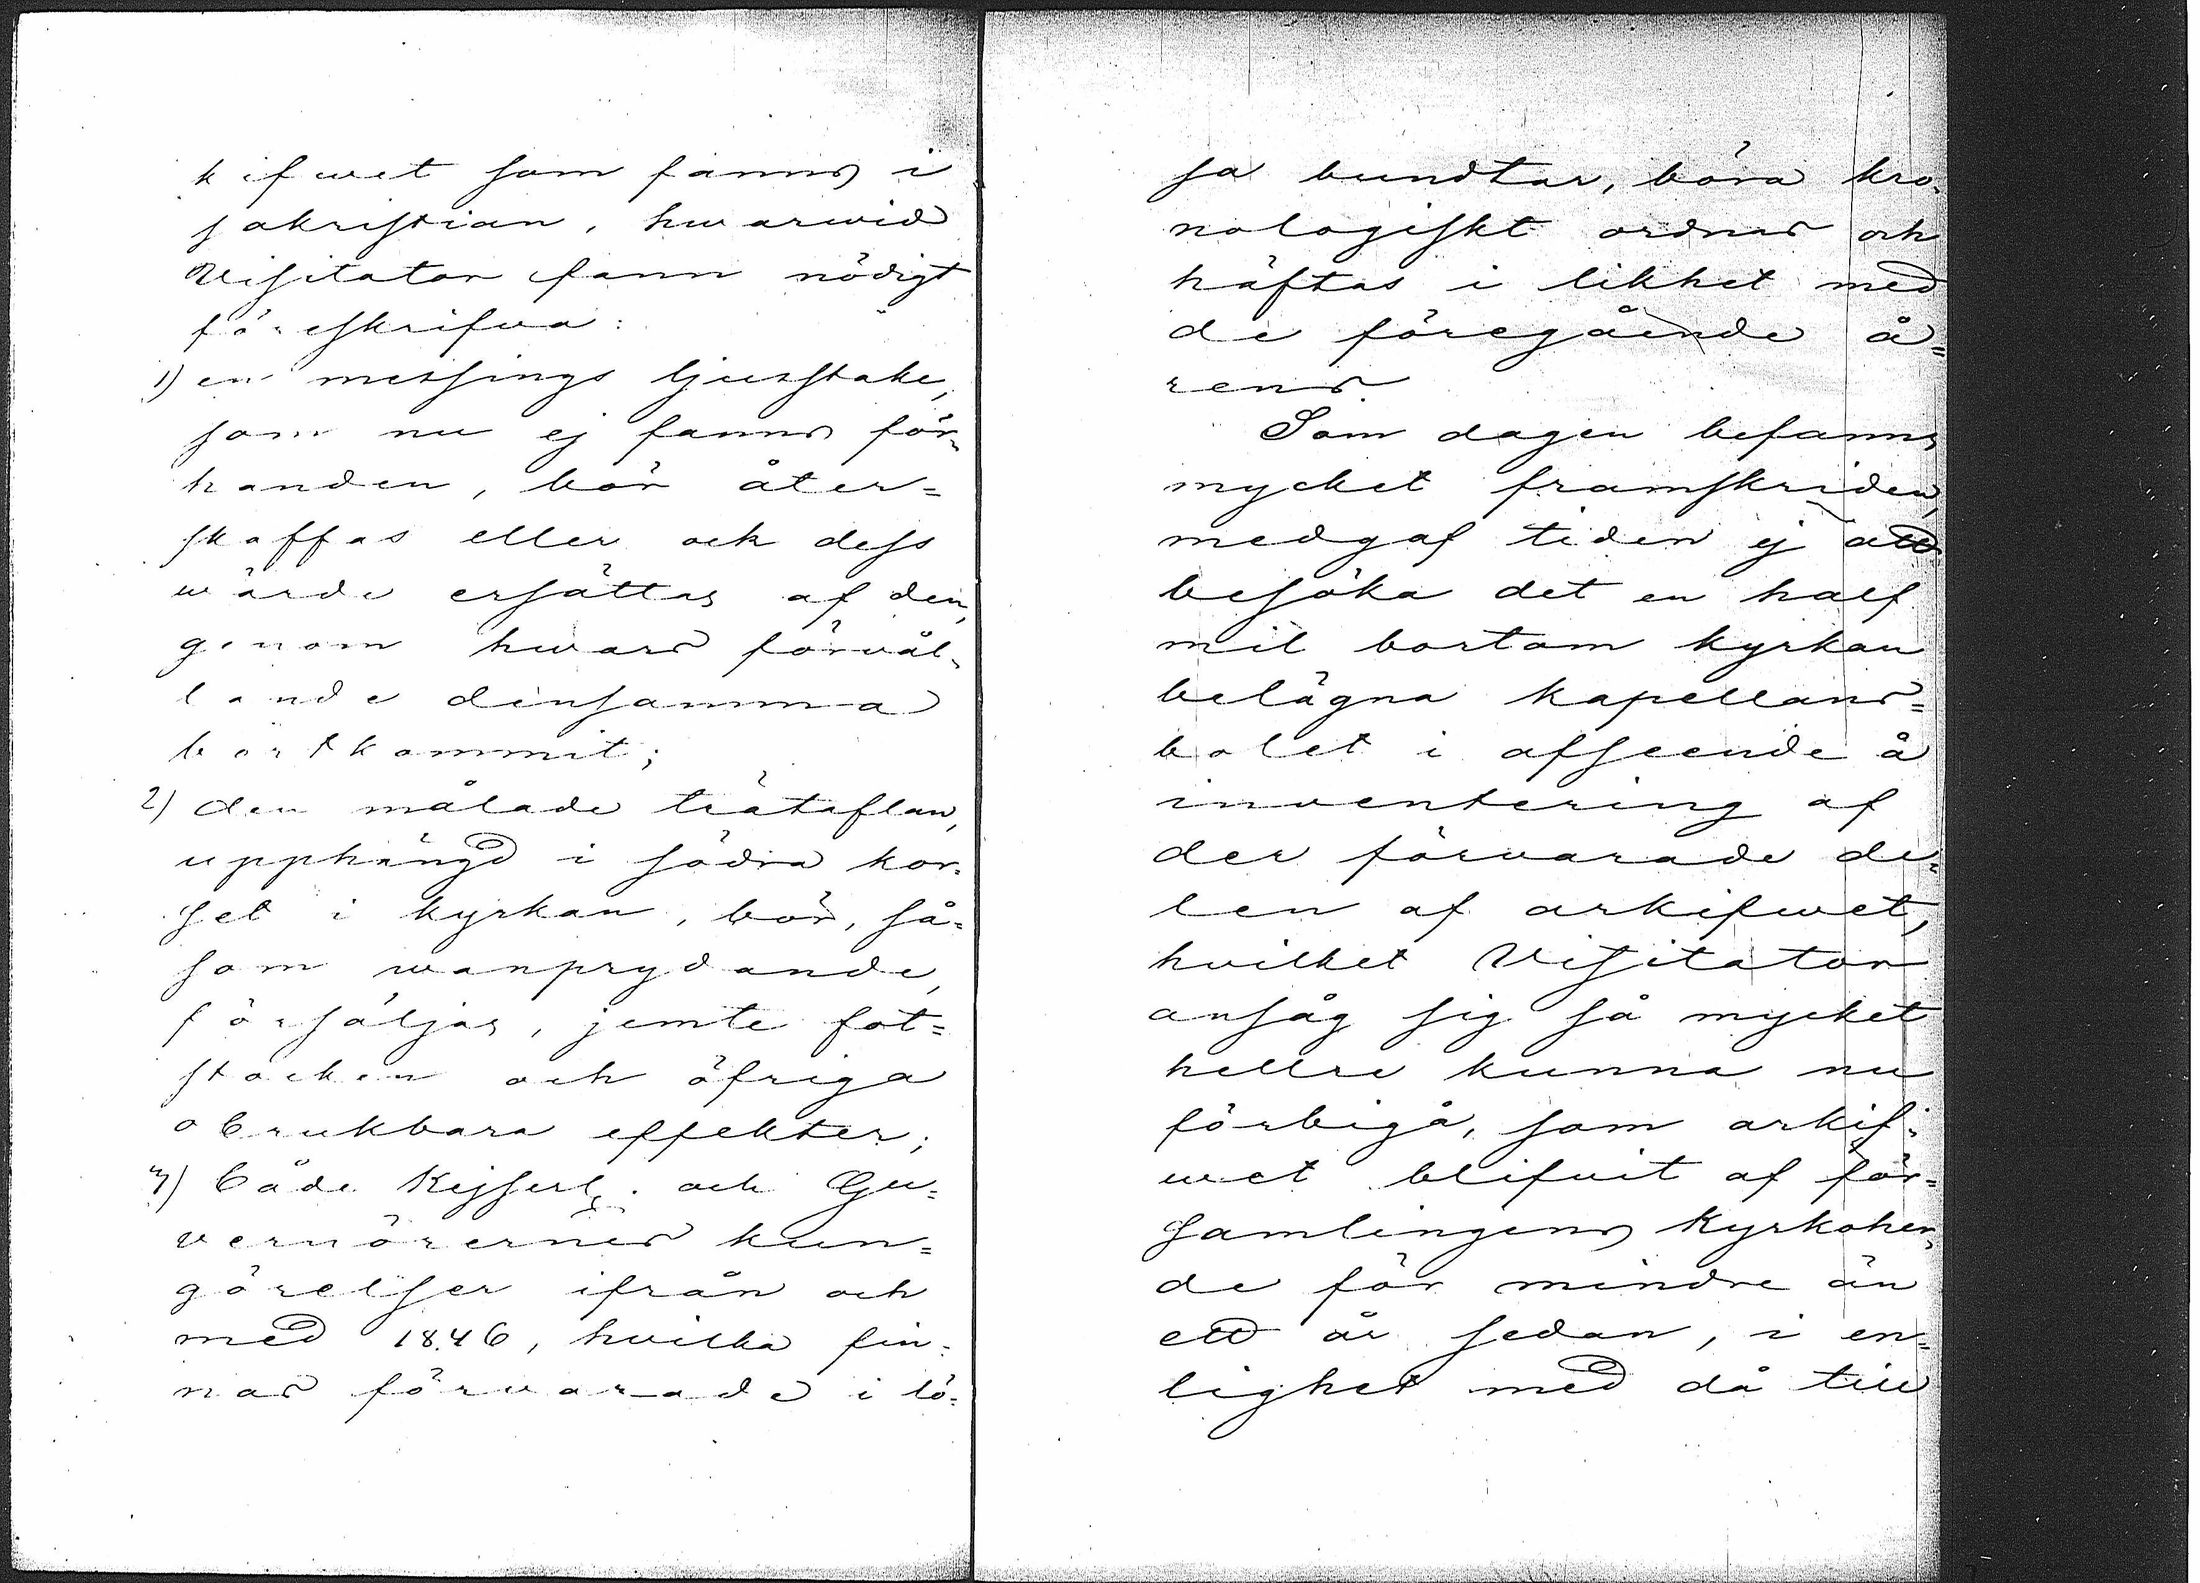 kifwet som fanns i
sakristian, hwarwid
Visitator fann nödigt
föreskrifwa:
1) en messings ljusstake,
som nu ej fanns för-
handen, bör åter=
skaffas eller och dess
wärde ersättas af den,
genom hwars förvål-
lande densamma
bortkommit;
2) den målade trätaflan,
upphängd i södra kor-
set i kyrkan, bör, så=
som wanprydande,
försäljas, jemte fot=
stocken och öfriga
obrukbara effekter;
3) både Kejserl. och Gu=
vernörernes kun=
görelser ifrån och
med 1846, hvilka fin-
nas förvarade i lö-
sa bundtar, böra kro-
nologiskt ordnas och
häftas i likhet med
de föregående å=
rens.
Som dagen befanns
mycket framskriden,
medgaf tiden ej att
besöka det en half
mil bortom kyrkan
belägna kapellans=
bolet i afseende å
inventering af
der förvarade de-
len af arkifwet,
hvilket Visitator
ansåg sig så mycket
hellre kunna nu
förbigå, som arkif-
wet blifvit af för=
samlingens Kyrkoher-
de för mindre än
ett år sedan, i en=
lighet med då till